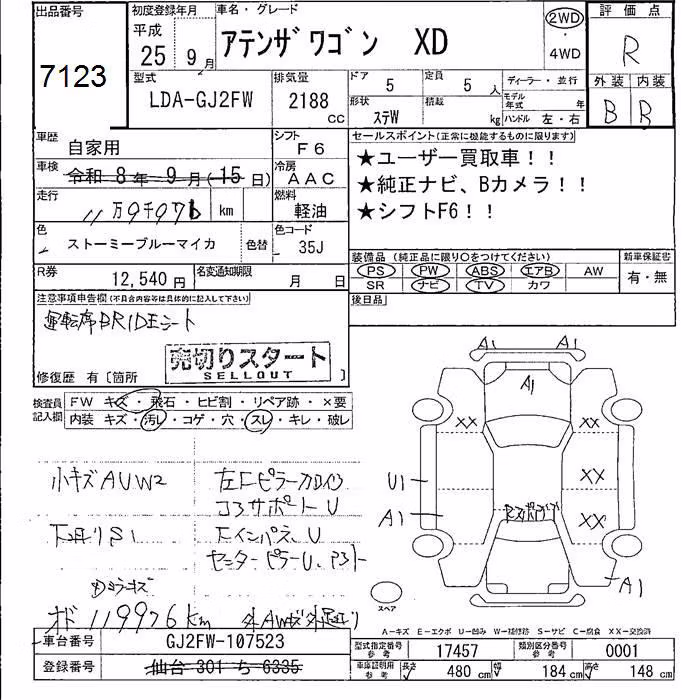 出品番号
7123
初度登録年月
平成
25年9月
車名・グレード
アテンザワゴン XD
2WD
・
4WD
評価点
R
外装 内装
B R
型式
LDA-GJ2FW
排気量
2188
CC
ドア 5
定員 5 人
形状 ステW
積載 kg
ディーラー・並行
モデル年式 年
ハンドル 左・右
車歴 自家用
シフト F6
車検 令和 8年 9月(15日)
冷房 AAC
走行 km
燃料 軽油
色 ストーミーブルーマイカ 色替
色コード 35J
R券 12,540円
名変通知期限 月 日
セールスポイント(正常に機能するものに限ります)
★ユーザー買取車!!
★純正ナビ、Bカメラ!!
★シフトF6!!
装備品 (純正品に限り○をつけてください)
PS PW ABS エアB AW
SR ナビ TV カワ
新車保証書
有・無
後日品
注意事項申告欄(不具合内容等は具体的に記入して下さい)
運転席BRIDEシート
売切りスタート
SELLOUT
修復歴 有〔箇所 〕
検査員記入欄
FW キズ・飛石・ヒビ割・リペア跡・×要
内装 キズ・汚レ・コゲ・穴・スレ・キレ・破レ
小キズAUW2
コアサポートU
下廻りS1
オド 119976km
A1
A1
A1
XX
XX
U1
XX
A1
XX
A1
スペア
A-キズ E-エクボ U-凹み W-補修跡 S-サビ C-腐食 XX-交換済
車台番号 GJ2FW-107523
登録番号 仙台 301 ち 6335
型式指定番号 参考 17457
類別区分番号 参考 0001
車庫証明用 参考 長さ 480 cm 幅 184 cm 高さ 148 cm